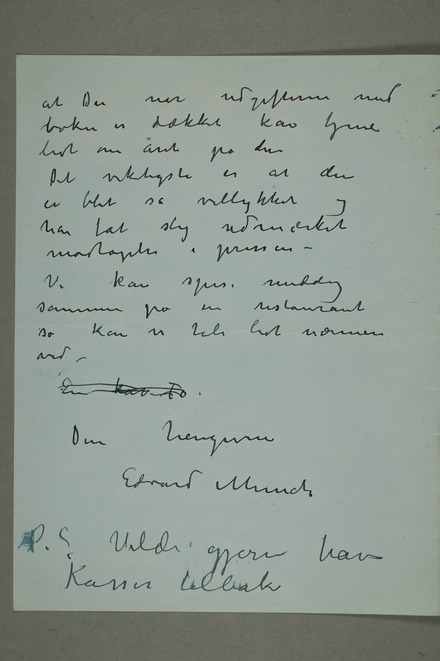 at De når udgifterne med
boken er dækket kan tjene
lidt om året på den
Det viktigste er at den
er blet så vellykket og
har fåt slig udmærket
modtagelse i pressen –
Vi kan spise middag
sammen på en restaurant
så kan vi tale lidt nærmere
ved –
Din hengivne
Edvard Munch
P.S. Vilde gjerne have
Kassen tilbake